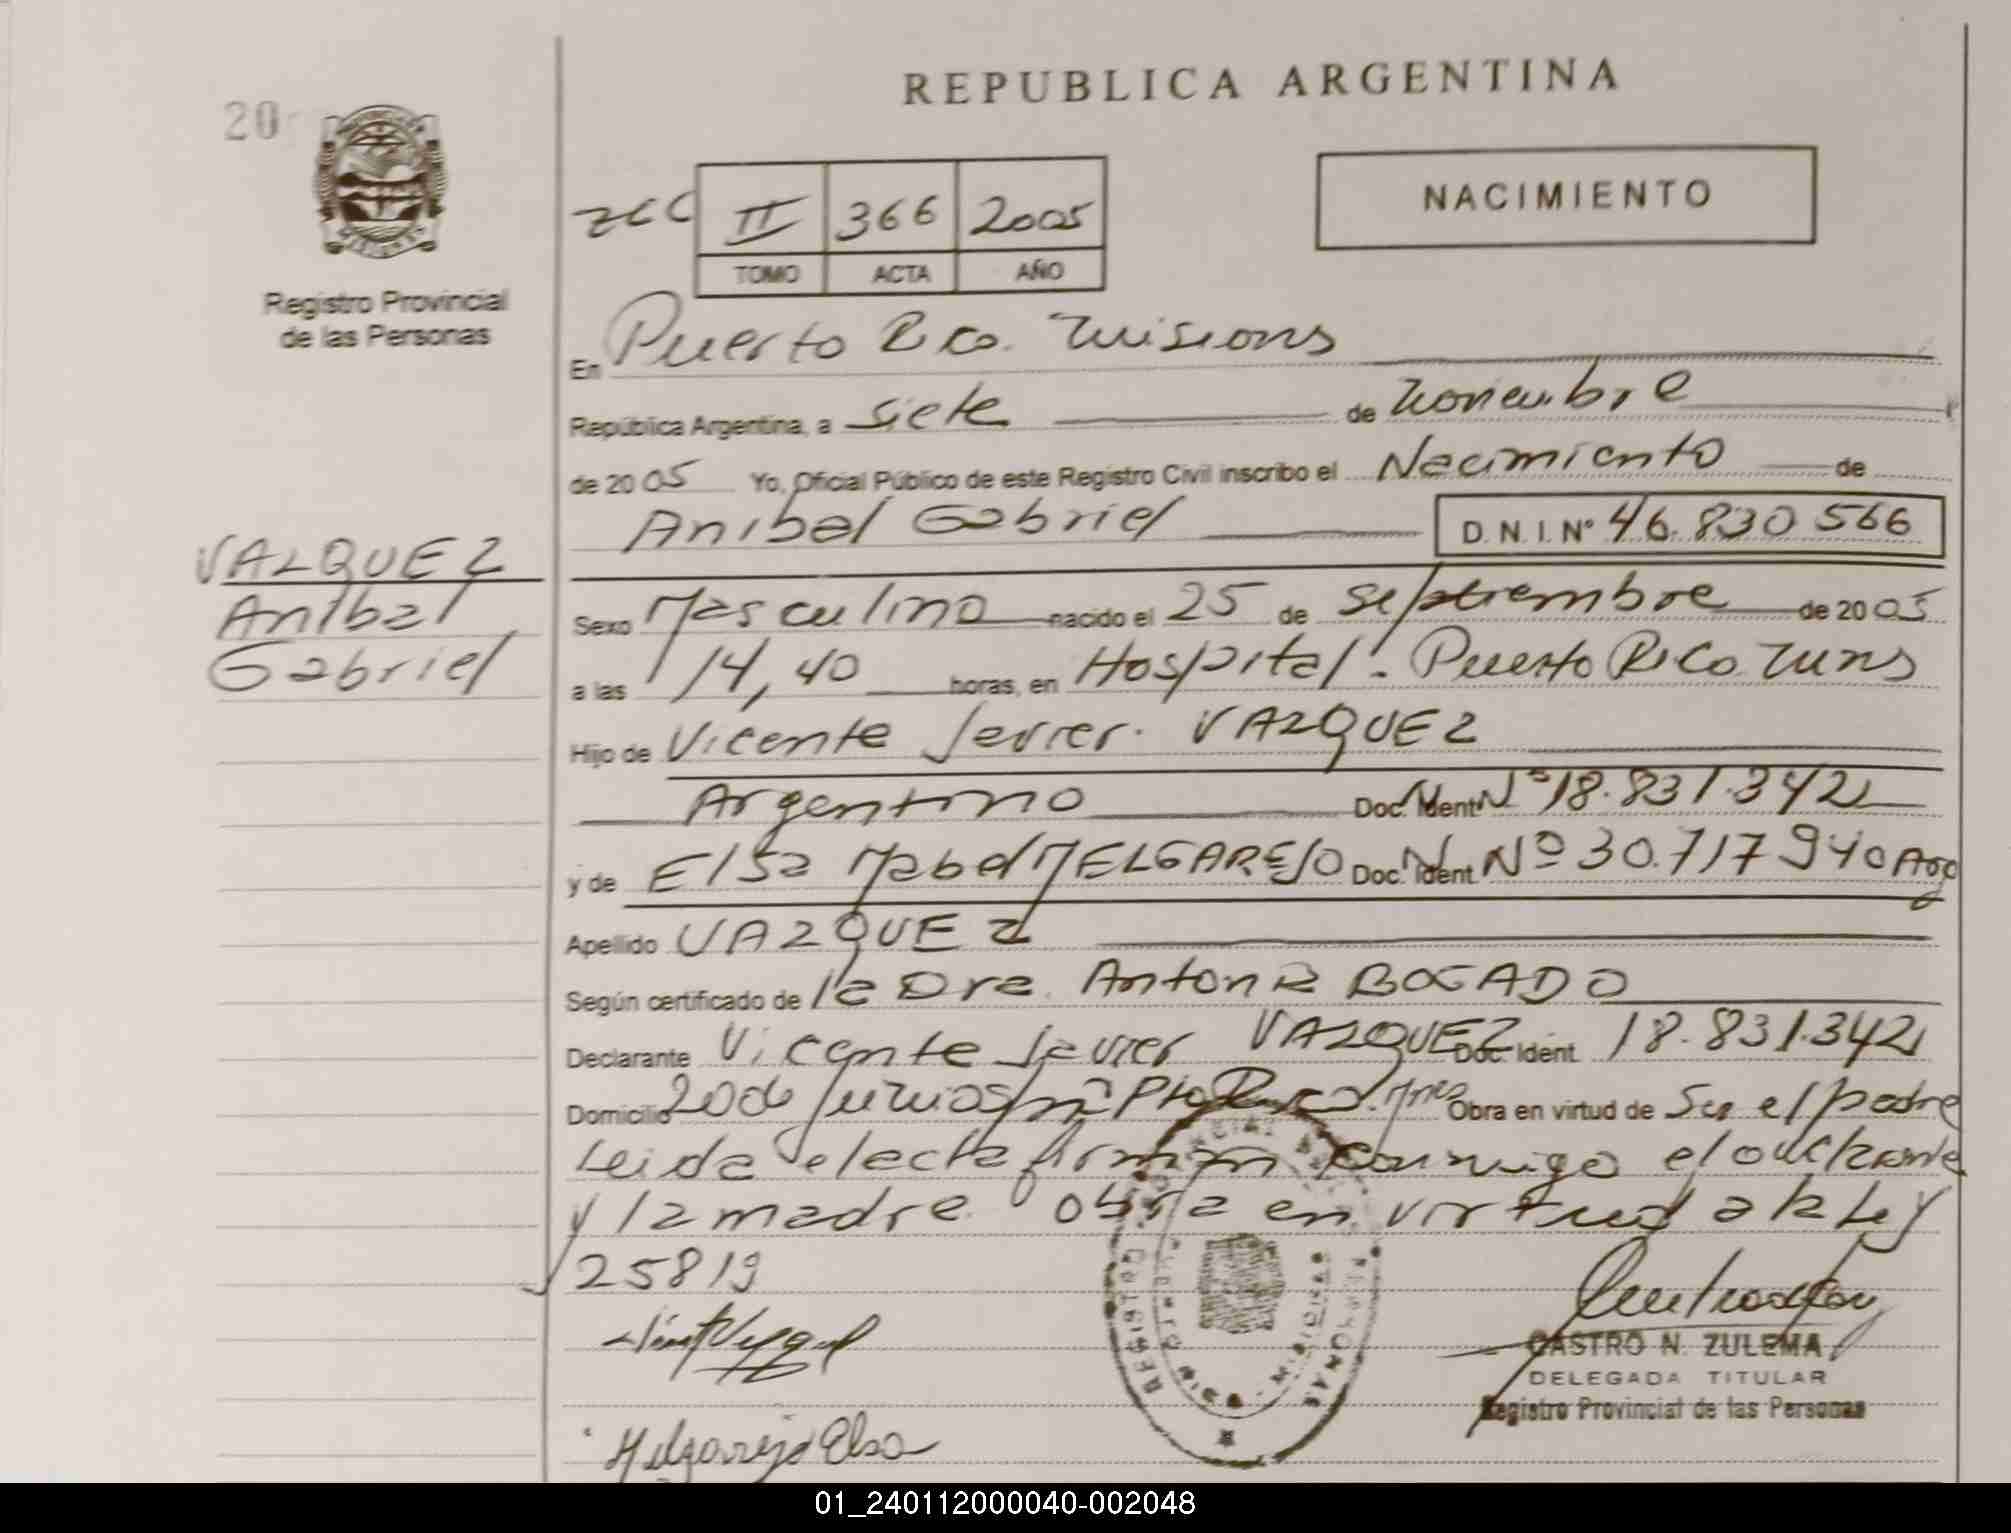 REPUBLICA ARGENTINA
20
Registro Provincial
de las Personas
NACIMIENTO
II 366 2005
TOMO ACTA AÑO
En Puerto Rico. Misions
República Argentina, a siete de noviembre
de 2005 Yo, Oficial Público de este Registro Civil inscribo el Nacimiento de
Anibal Gabriel D. N. I. Nº 46.830566
VAZQUEZ
Anibal
Gabriel
Sexo Masculino nacido el 25 de septiembre de 2005
a las 14,40 horas, en Hospital. Puerto Rico Mns
Hijo de Vicente Javier. VAZQUEZ
Argentino Doc. Ident Nº 18.831.342
y de Elsa Mabel MELGAREJO Doc. Ident. Nº 30.717940 Arg
Apellido VAZQUEZ
Según certificado de la Dra. Antonia BOGADO
Declarante Vicente Javier VAZQUEZ Doc. Ident. 18.831.342
Domicilio 20 de Junio s/nº Pto Rico. Mnes Obra en virtud de Ser el padre
Leida el acta firman conmigo el declarante
y la madre. obra en virtud a la Ley
25819
CASTRO N. ZULEMA
DELEGADA TITULAR
Registro Provincial de las Personas
Melgarejo Elsa
01_240112000040-002048